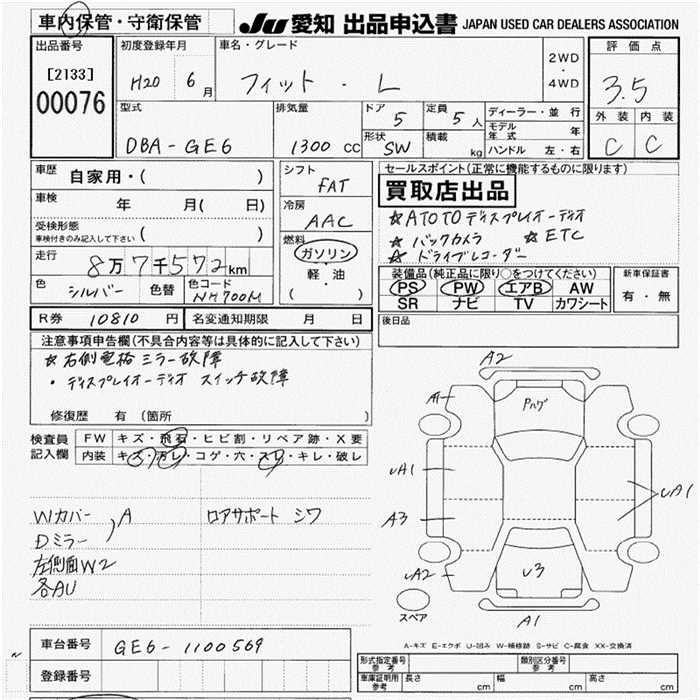 車内保管・守衛保管
JU 愛知 出品申込書 JAPAN USED CAR DEALERS ASSOCIATION
出品番号
[2133]
00076
初度登録年月
H20 6月
車名・グレード
フィット・L
2WD
・
4WD
評価点
3.5
外装 内装
C C
型式
DBA-GE6
排気量
1300 cc
ドア
5
形状
SW
定員
5人
積載
kg
ディーラー・並行
モデル年式 年
ハンドル 左・右
車歴
自家用・( )
車検
年 月( 日)
受検形態
車検付きのみ記入して下さい ( )
走行
8万7千572km
色
シルバー
色替
色コード
NH700M
シフト
FAT
冷房
AAC
燃料
ガソリン
・
軽油
( )
セールスポイント(正常に機能するものに限ります)
買取店出品
☆ATOTOディスプレイオーディオ
☆バックカメラ ☆ETC
☆ドライブレコーダー
装備品(純正品に限り○をつけてください)
PS PW エアB AW
SR ナビ TV カワシート
新車保証書
有・無
後日品
R券 10810円 名変通知期限 月 日
注意事項申告欄(不具合内容等は具体的に記入して下さい)
☆右側電格ミラー故障
・ディスプレイオーディオ スイッチ故障
修復歴 有(箇所 )
検査員
記入欄
FW キズ・飛石・ヒビ割・リペア跡・X要
内装 キズ・汚レ・コゲ・穴・スレ・キレ・破レ
Wカバー
Dミラー
A
左側面W2
各AU
ロアサポート シワ
A2
A1
Pハゲ
UA1
UA1
A3
UA2
U3
A1
スペア
A-キズ E-エクボ U-凹み W-補修跡 S-サビ C-腐食 XX-交換済
車台番号
GE6-1100569
登録番号
形式指定番号
参考
類別区分番号
参考
車庫証明用
参考
長さ cm
幅 cm
高さ cm